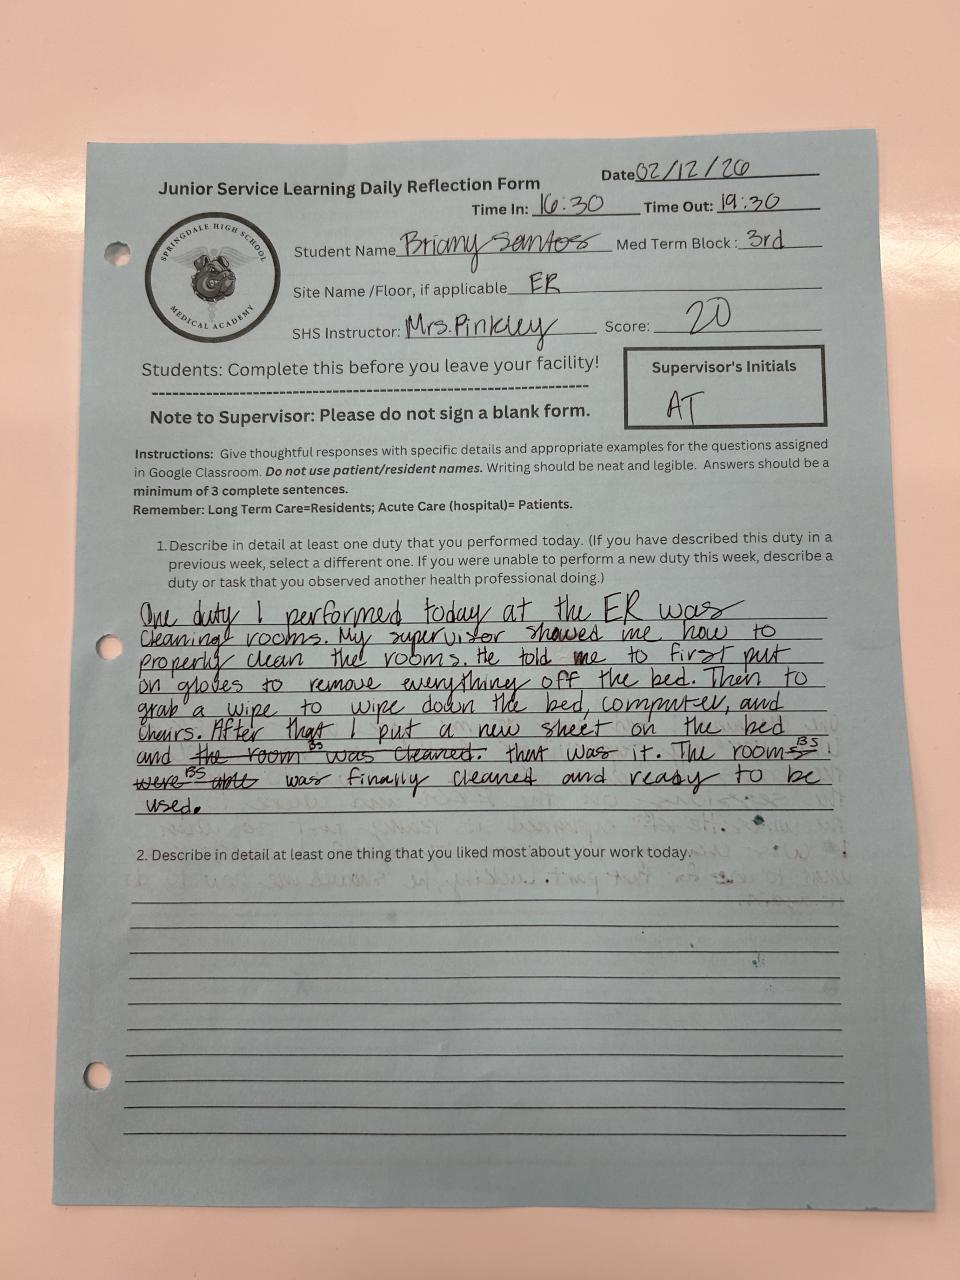 Junior Service Learning Daily Reflection Form
Date 02/12/26
Time In: 16:30 Time Out: 19:30
SPRINGDALE HIGH SCHOOL
MEDICAL ACADEMY
Student Name Briany Santos Med Term Block: 3rd
Site Name /Floor, if applicable ER
SHS Instructor: Mrs. Pinkley Score: 20
Students: Complete this before you leave your facility!
Supervisor's Initials
AT
Note to Supervisor: Please do not sign a blank form.
Instructions: Give thoughtful responses with specific details and appropriate examples for the questions assigned
in Google Classroom. Do not use patient/resident names. Writing should be neat and legible. Answers should be a
minimum of 3 complete sentences.
Remember: Long Term Care=Residents; Acute Care (hospital)= Patients.
1. Describe in detail at least one duty that you performed today. (If you have described this duty in a
previous week, select a different one. If you were unable to perform a new duty this week, describe a
duty or task that you observed another health professional doing.)
One duty I performed today at the ER was
cleaning rooms. My supervisor showed me how to
properly clean the rooms. He told me to first put
on gloves to remove everything off the bed. Then to
grab a wipe to wipe down the bed, computer, and
chairs. After that I put a new sheet on the bed
and the room BS was cleaned. that was it. The rooms BS
were BS able was finally cleaned and ready to be
used.
2. Describe in detail at least one thing that you liked most about your work today.